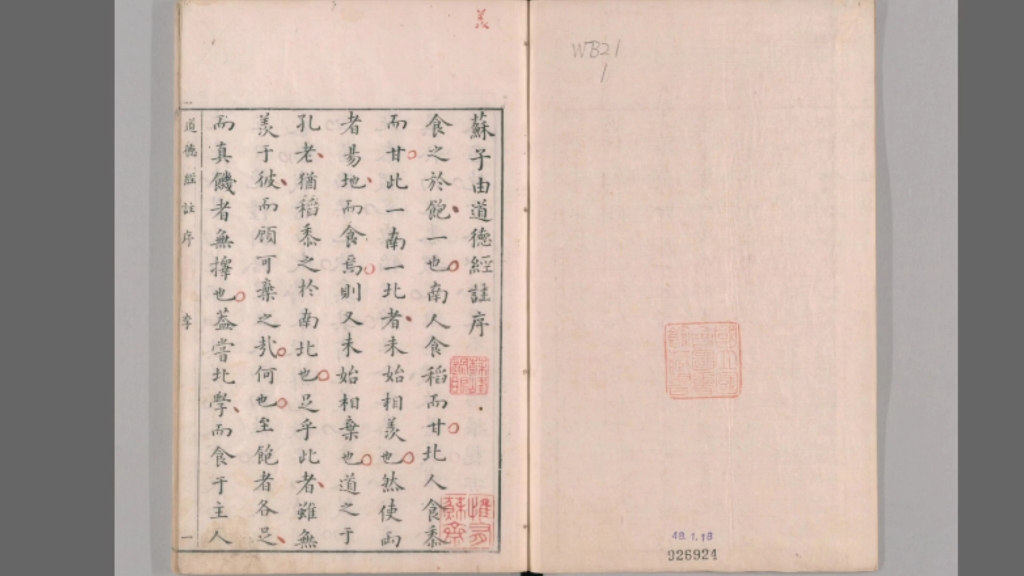 WB21
1
48.1.18
926924
蘇子由道德經註序
食之於飽一也南人食稻而甘北人食黍
而甘此一南一北者未始相羨也然使兩
者易地而食焉則又未始相棄也道之于
孔老猶稻黍之於南北也足乎此者雖無
羨于彼而顧可棄之哉何也至飽者各足
而真饑者無擇也蓋嘗北學而食于主人
道德經註序
李
一